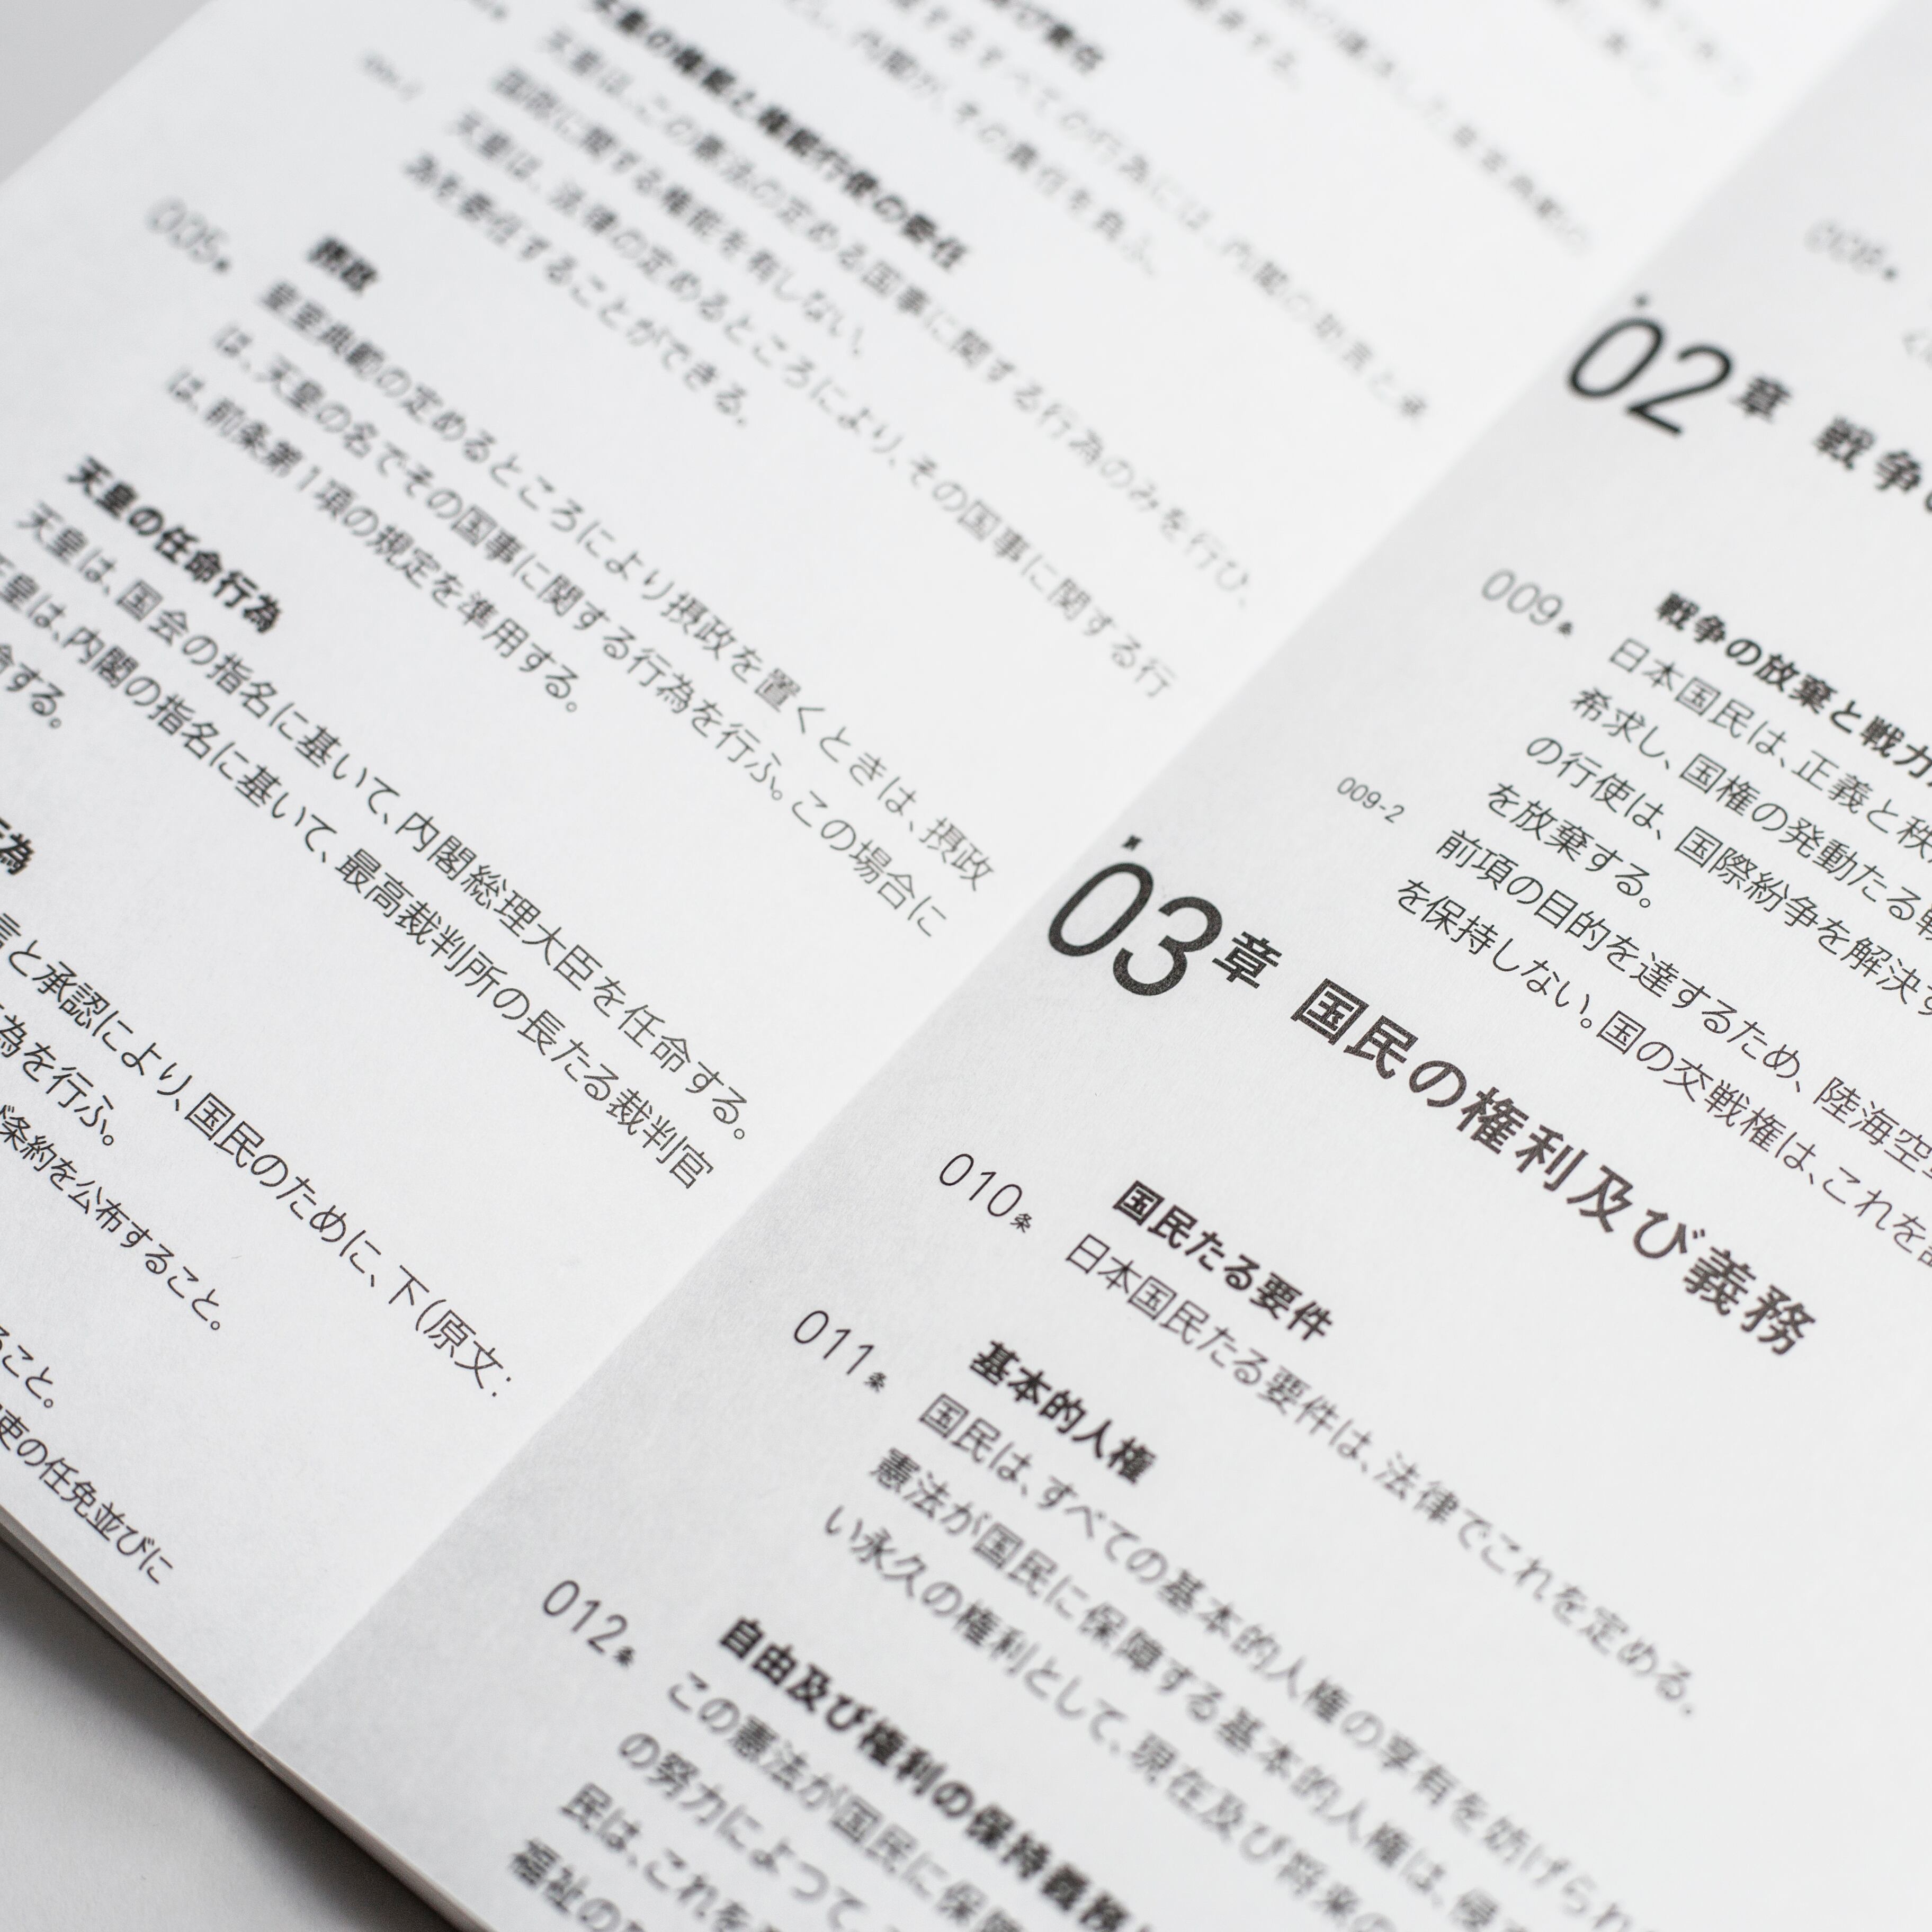 天皇の権能と権能行使の委任
天皇は、この憲法の定める国事に関する行為のみを行ひ、
国政に関する権能を有しない。
天皇は、法律の定めるところにより、その国事に関する行
為を委任することができる。
005条
摂政
皇室典範の定めるところにより摂政を置くときは、摂政
は、天皇の名でその国事に関する行為を行ふ。この場合に
は、前条第1項の規定を準用する。
天皇の任命行為
天皇は、国会の指名に基いて、内閣総理大臣を任命する。
天皇は、内閣の指名に基いて、最高裁判所の長たる裁判官
命する。
行為
言と承認により、国民のために、下(原文:
為を行ふ。
び条約を公布すること。
ること。
吏の任免並びに
02章 戦争
009条
戦争の放棄と戦力
日本国民は、正義と秩
希求し、国権の発動たる戦
の行使は、国際紛争を解決す
を放棄する。
009-2
前項の目的を達するため、陸海空
を保持しない。国の交戦権は、これを
第
03章 国民の権利及び義務
010条
国民たる要件
日本国民たる要件は、法律でこれを定める。
011条
基本的人権
国民は、すべての基本的人権の享有を妨げられ
憲法が国民に保障する基本的人権は、侵
い永久の権利として、現在及び将来の
012条
自由及び権利の保持義務
この憲法が国民に保障
の努力によつて、
民は、これを
福祉の